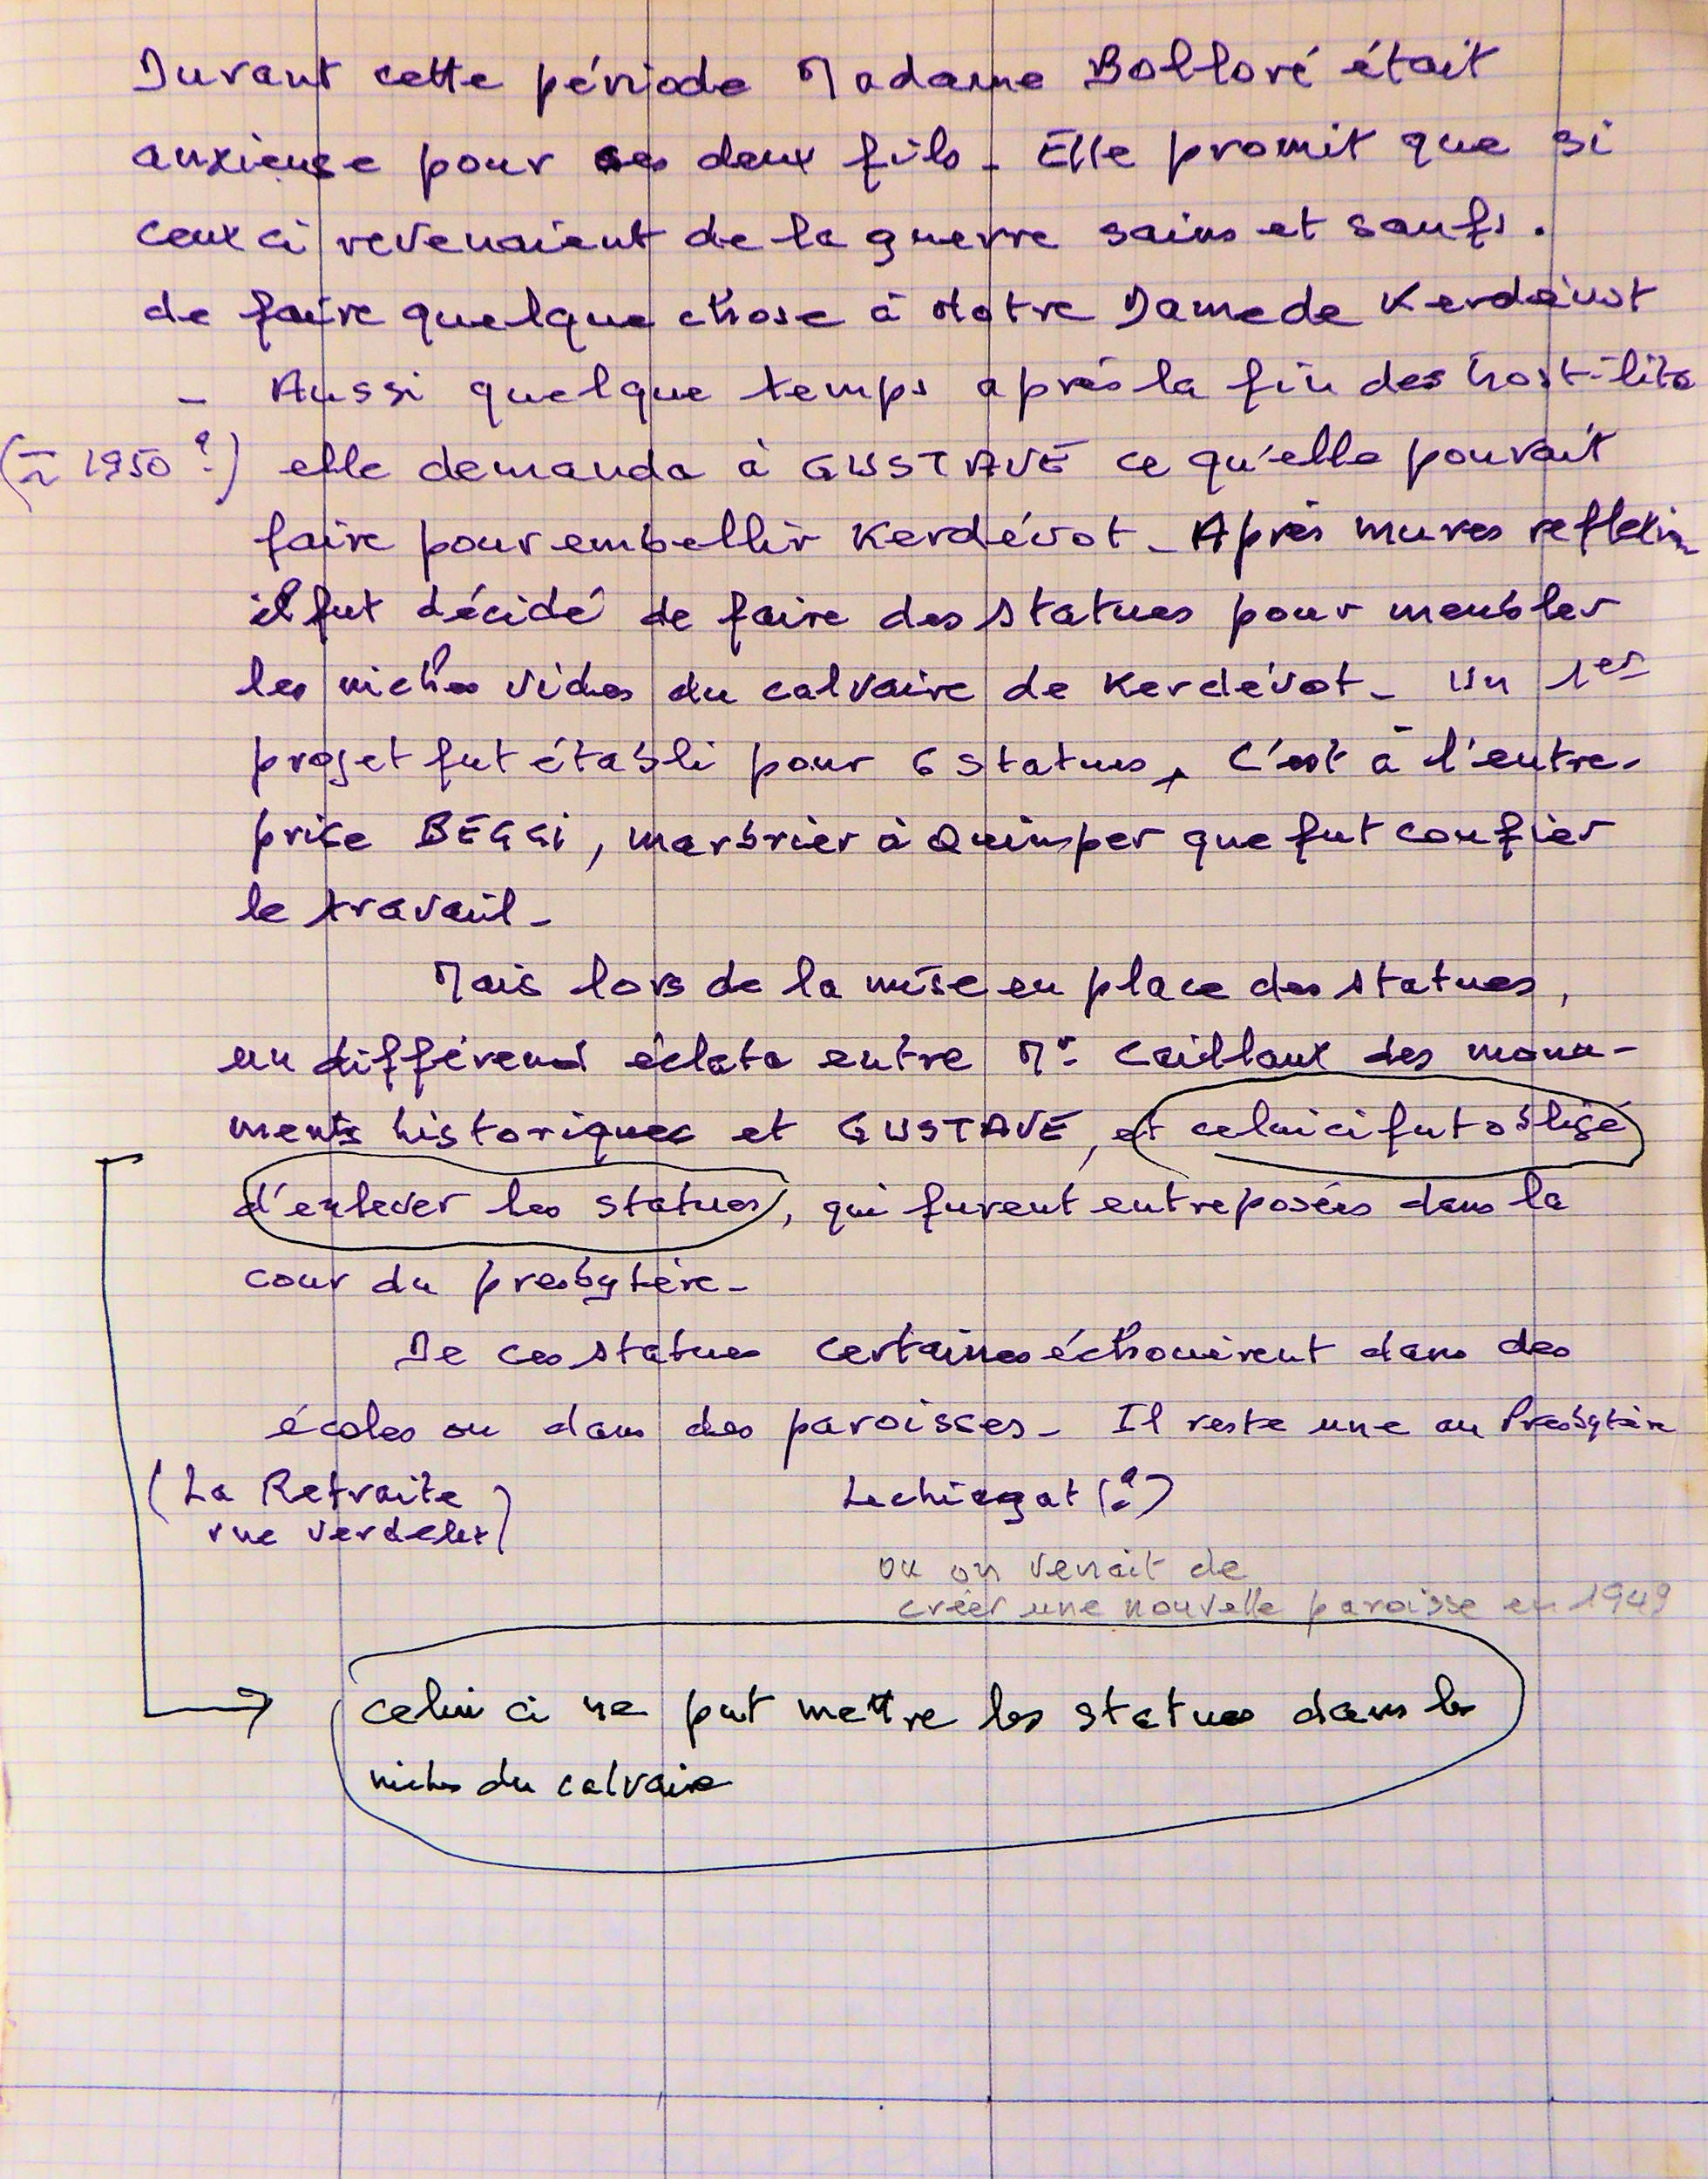 Durant cette période Madame Bolloré était
anxieuse pour ses deux fils - Elle promit que si
ceux ci revenaient de la guerre sains et saufs.
de faire quelque chose à Notre Dame de Kerdévot
- Aussi quelque temps après la fin des hostilités
(≈ 1950 ?) elle demanda à GUSTAVE ce qu'elle pouvait
faire pour embellir Kerdévot - Après mures reflexion
il fut décidé de faire des statues pour meubler
les niches vides du calvaire de Kerdévot - Un 1er
projet fut établi pour 6 statues, C'est à l'entre-
prise BEGGI, marbrier à Quimper que fut confier
le travail -
Mais lors de la mise en place des statues,
un différend éclata entre Mr Caillaux des monu-
ments historiques et GUSTAVE, et celui ci fut obligé
d'enlever les statues, qui furent entreposées dans la
cour du presbytère -
De ces statues certaines échouèrent dans des
écoles ou dans des paroisses - Il reste une au Presbytère
(La Retraite Lechiagat (?)
rue Verdelet)
ou on venait de
créer une nouvelle paroisse en 1949
celui ci ne put mettre les statues dans les
niches du calvaire